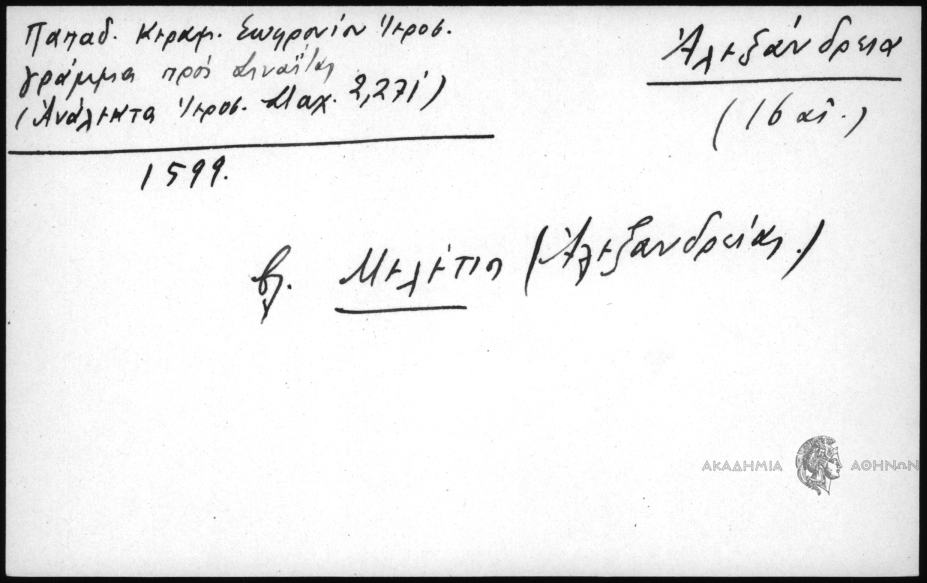 Παπαδ. Κεραμ. Σωφρονίου Ἱεροσ.
γράμμα πρὸς Σιναΐτας
(Ἀνάλεκτα Ἱεροσ. Σταχ. 2,271)
1599.
Ἀλεξάνδρεια
(16 αἰ.)
βλ. Μελέτιος (Ἀλεξανδρείας.)
ΑΚΑΔΗΜΙΑ ΑΘΗΝΩΝ